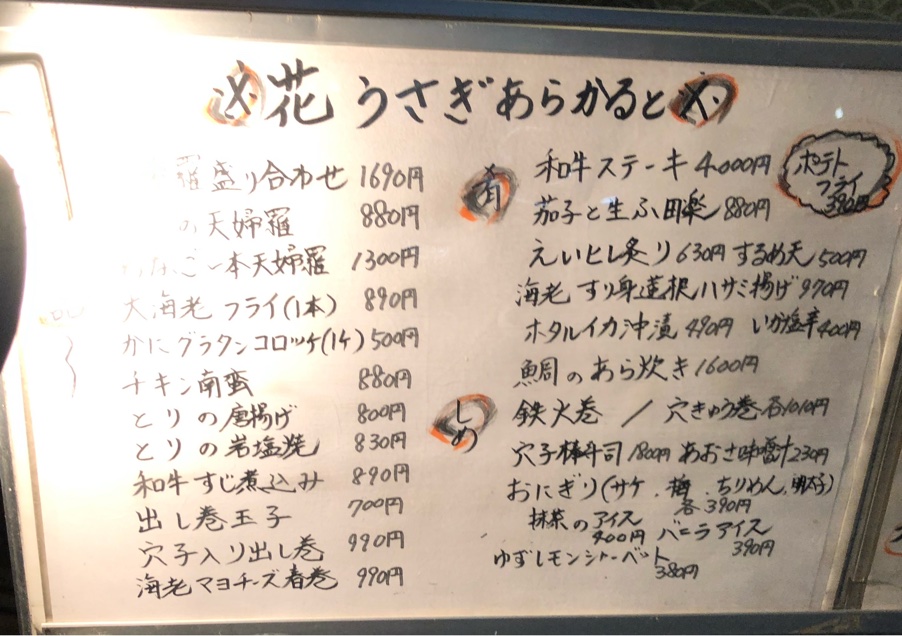 花うさぎあらかると
羅盛り合わせ 1690円
の天婦羅 880円
なご一本天婦羅 1300円
大海老フライ(1本) 890円
かにグラタンコロッケ(1ケ) 500円
チキン南蛮 880円
とりの唐揚げ 800円
とりの岩塩焼 830円
和牛すじ煮込み 890円
出し巻玉子 700円
穴子入り出し巻 990円
海老マヨチーズ春巻 990円
和牛ステーキ 4000円
ポテトフライ 390円
茄子と生ふ田楽 880円
えいヒレ炙り 630円 するめ天 500円
海老すり身蓮根ハサミ揚げ 970円
ホタルイカ沖漬 490円 いか塩辛 400円
鯛のあら炊き 1600円
しめ
鉄火巻 / 穴きゅう巻 各1010円
穴子棒寿司 1800円 あおさ味噌汁 230円
おにぎり(サケ、梅、ちりめん、明太子)
各390円
抹茶のアイス 400円 バニラアイス 390円
ゆずレモンシャーベット 380円